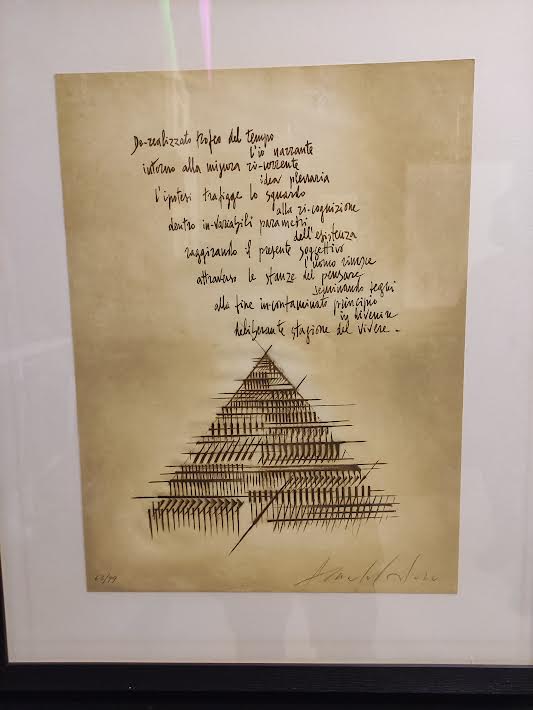 De-realizzato trofeo del tempo
l'io narrante
intorno alla misura ri-corrente
idea plenaria
l'ipotesi trafigge lo sguardo
alla ri-cognizione
dentro in-variabili parametri
dell'esistenza
raggirando il presente soggettivo
l'uomo rinasce
attraverso le stanze del pensare
seminando segni
alla fine in-contaminato principio
in divenire
deliberante stagione del vivere -
63/99